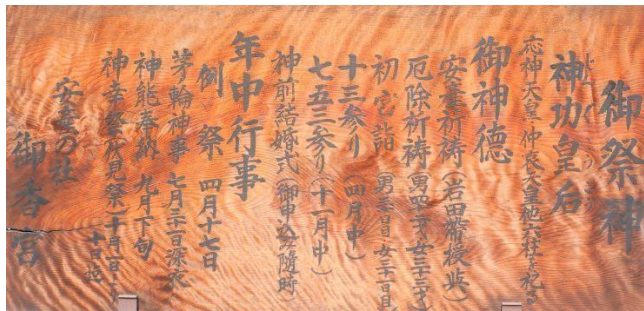 御祭神
神功皇后
じんぐうこうごう
応神天皇 仲哀天皇他六柱を祀る
御神徳
安産祈祷（岩田帯授与）
厄除祈祷（男四二才・女三三才）
初宮詣（男三一日・女三二日目）
十三参り（四月中）
七五三参り（十一月中）
神前結婚式（御申込み随時）
年中行事
例祭 四月十七日
茅輪神事 七月三一日深夜
神能奉納 九月下旬
神幸祭（伏見祭）十月一日より十日迄
安産の社
御香宮